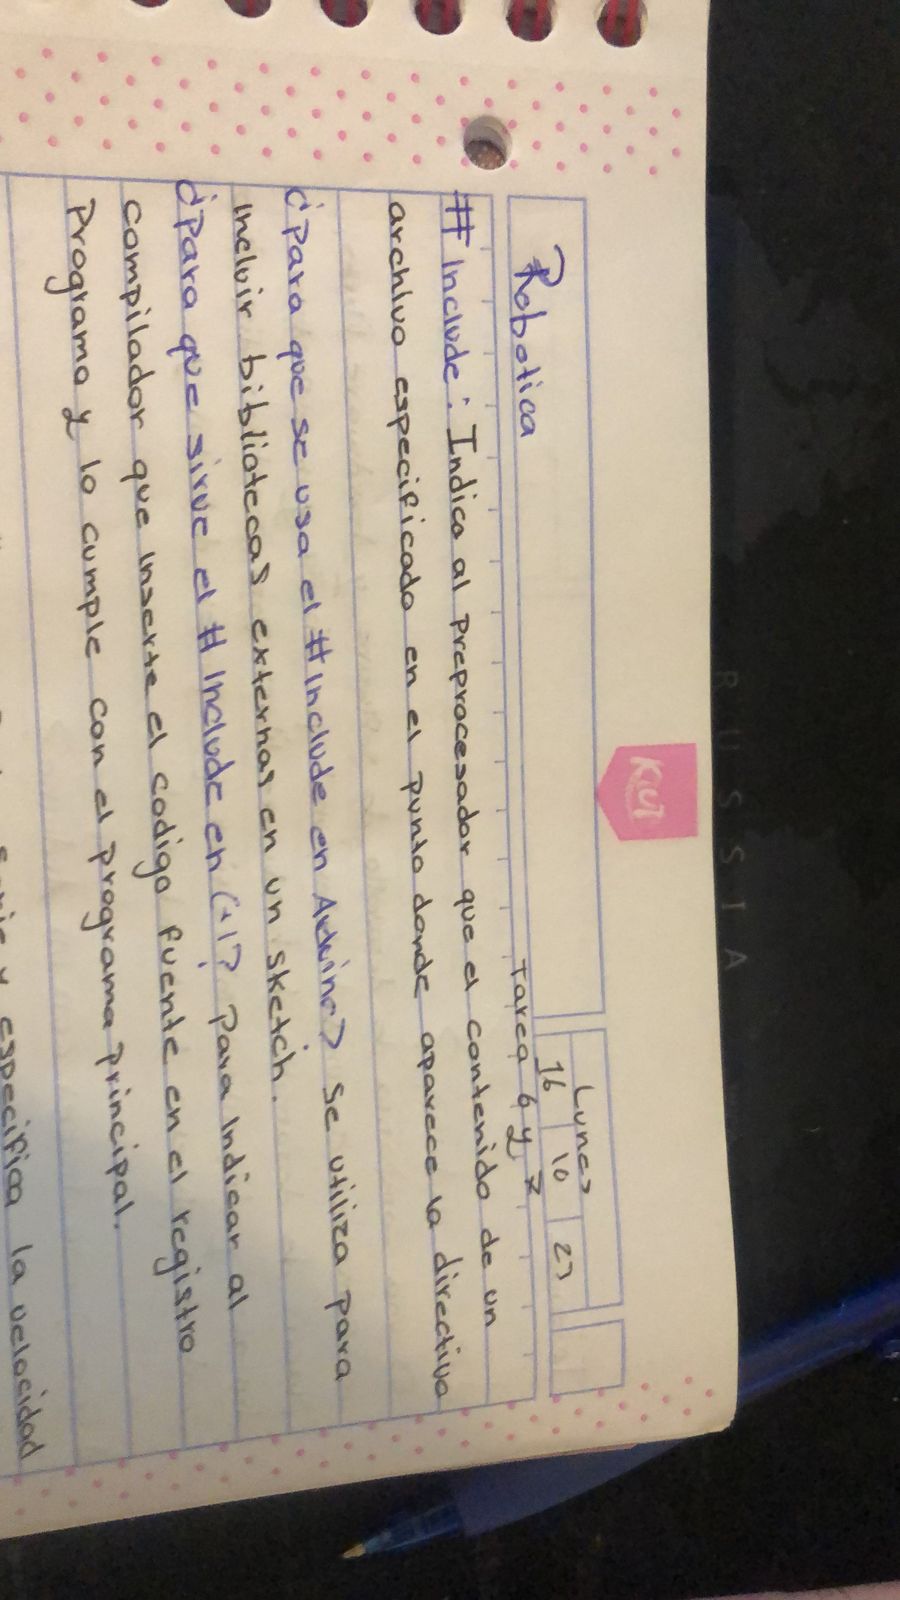 Lunes
16 10 23
Robotica
Tarea 6 y 7
# Include: Indica al preprocesador que el contenido de un
archivo especificado en el punto donde aparece la directiva
¿Para que se usa el #include en Arduino? Se utiliza para
incluir bibliotecas externas en un sketch.
¿Para que sirve el # Include en C++? Para indicar al
compilador que inserte el codigo fuente en el registro
Programa y lo cumple con el programa principal.
serie y especifica la velocidad
KIUT
RUSSIA